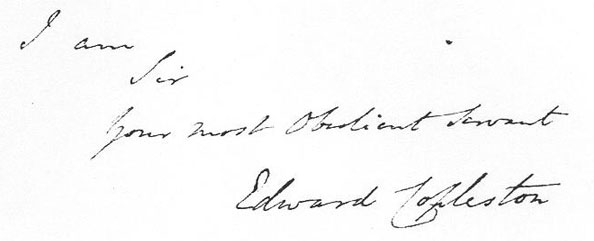 I am
Sir
Your most Obedient Servant
Edward Copleston